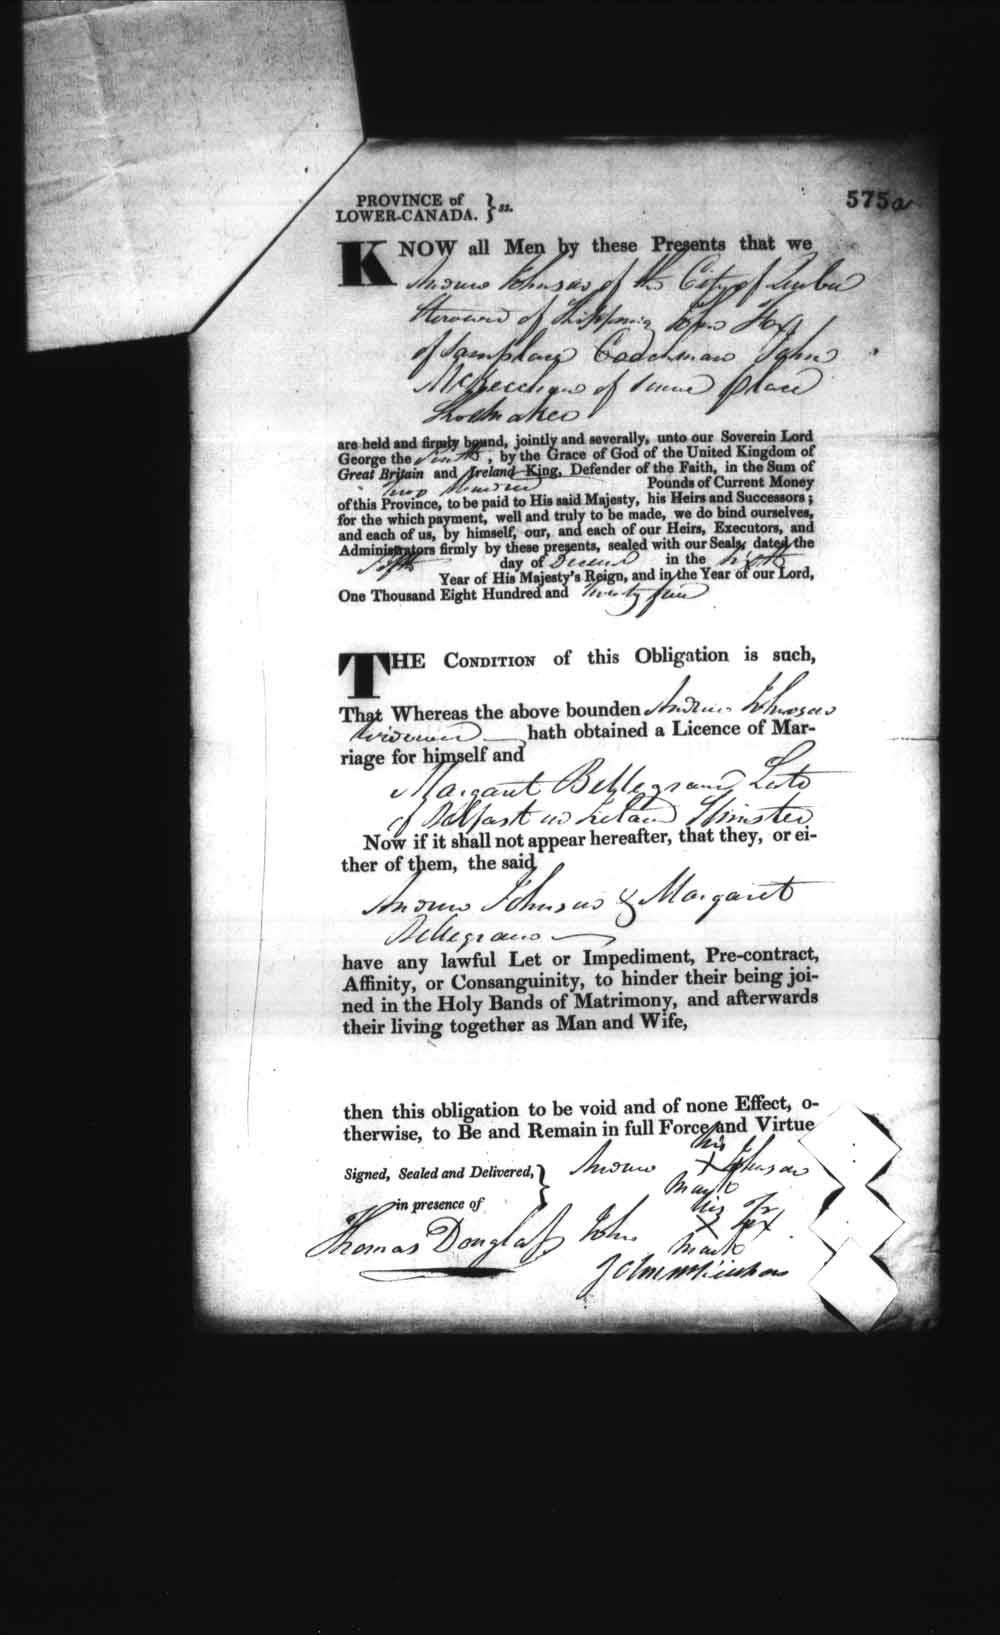 575a
PROVINCE of
LOWER-CANADA. } ss.
KNOW all Men by these Presents that we
Andrew Johnson of the City of Quebec
Steward of Shipping John Fox
of same place Coachman John
of same place
Shoemaker
are held and firmly bound, jointly and severally, unto our Soverein Lord
George the Fourth, by the Grace of God of the United Kingdom of
Great Britain and Ireland King, Defender of the Faith, in the Sum of
Two Hundred Pounds of Current Money
of this Province, to be paid to His said Majesty, his Heirs and Successors;
for the which payment, well and truly to be made, we do bind ourselves,
and each of us, by himself, our, and each of our Heirs, Executors, and
Administrators firmly by these presents, sealed with our Seals, dated the
Fifth day of Decem in the sixth
Year of His Majesty's Reign, and in the Year of our Lord,
One Thousand Eight Hundred and Twenty five
THE CONDITION of this Obligation is such,
That Whereas the above bounden Andrew Johnson
Widower hath obtained a Licence of Mar-
riage for himself and
Margaret Late
of Belfast in Ireland Spinster
Now if it shall not appear hereafter, that they, or ei-
ther of them, the said
Andrew Johnson & Margaret
have any lawful Let or Impediment, Pre-contract,
Affinity, or Consanguinity, to hinder their being joi-
ned in the Holy Bands of Matrimony, and afterwards
their living together as Man and Wife,
then this obligation to be void and of none Effect, o-
therwise, to Be and Remain in full Force and Virtue
his
Signed, Sealed and Delivered, } Andrew X Johnson
mark
in presence of his
Thomas Douglass John X Fox
mark
John